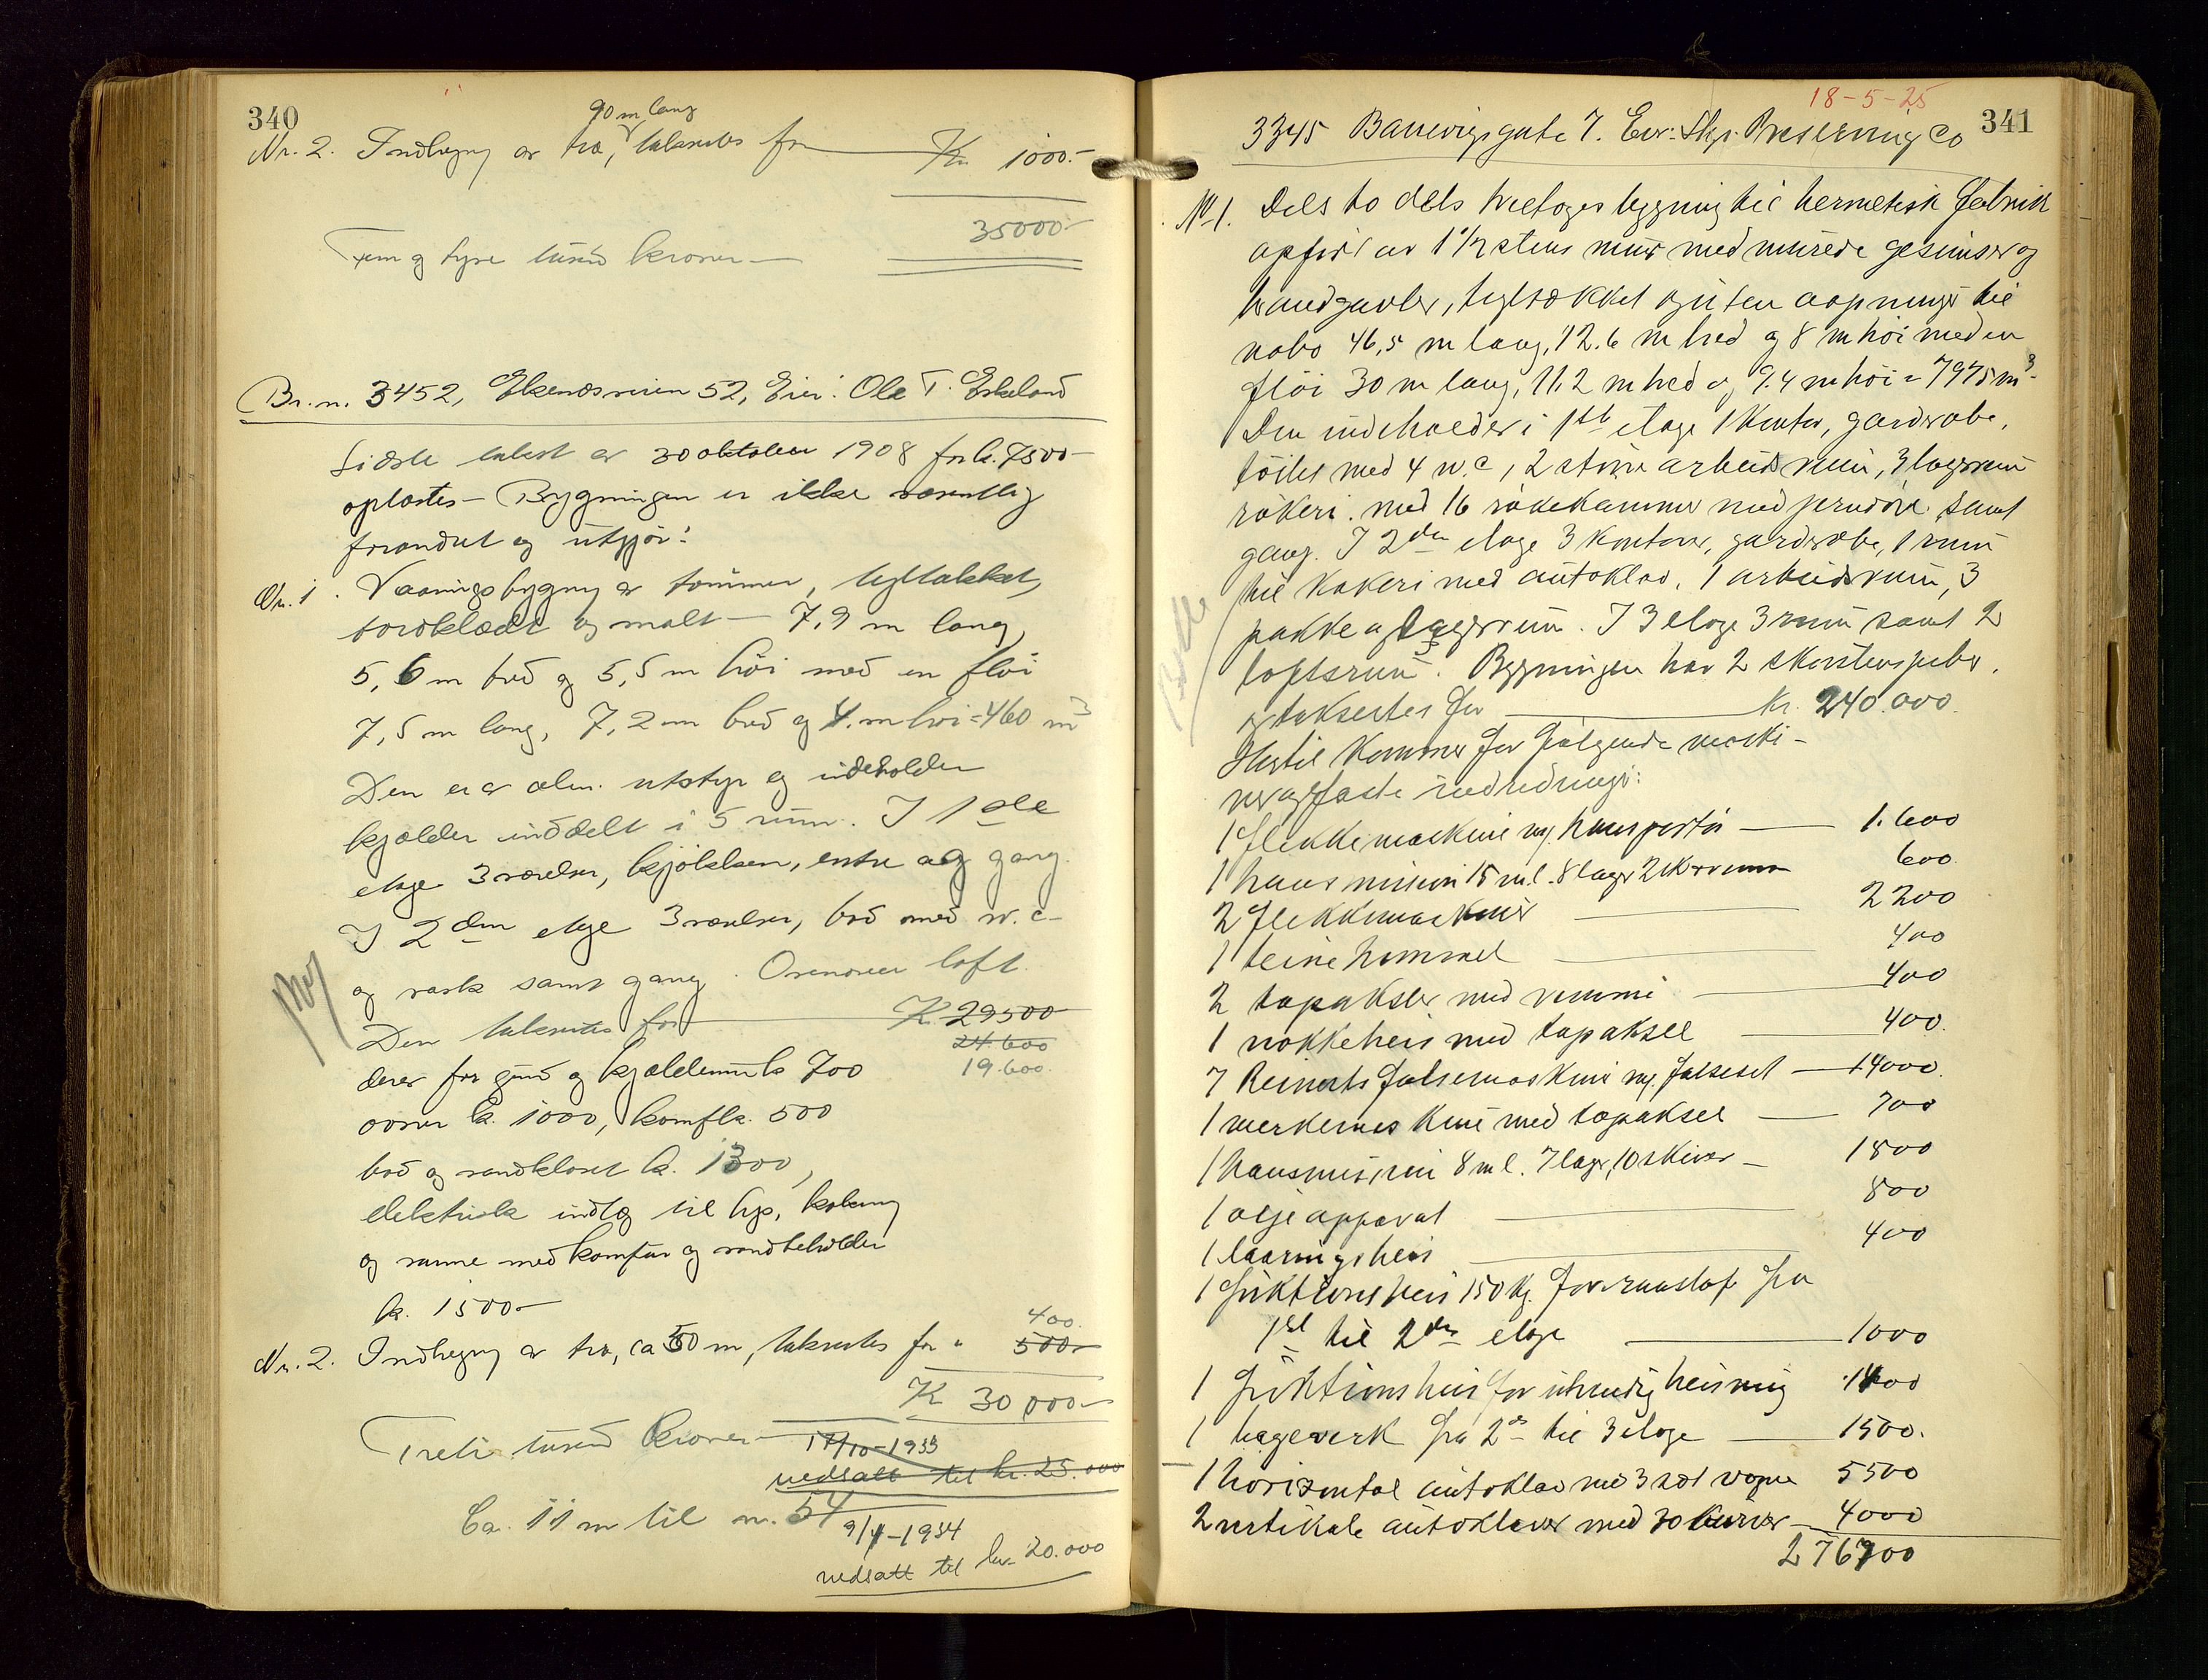 340
90 m lang
Nr. 2. Indhegn av træ, taksertes for Kr. 1000.-
35000-
Fem og tyve tusind kroner —
Br. n. 3452, Ekenæsveien 52, Eier: Ole T. Eskeland
Sidste takst av 30 oktober 1908 for k. 7500-
oplæstes - Bygningen er ikke væsentlig
forandret og utgjør:
Nr. 1. Vaaningsbygning av tømmer, tegltækket,
bordklædt og malt - 7,9 m lang,
5,6 m bred og 5,5 m høi med en fløi
7,5 m lang, 7,2 m bred og 4. m høi = 460 m³
Den er av alm. utstyr og indeholder
kjælder inddelt i 5 rum. I 1ste
etage 3 værelser, kjøkken, entre og gang.
I 2den etage 3 værelser, bad med w.c.
og vask samt gang. Ovenover loft.
Den taksertes for K. 29500
24.600
19.600.
derav for grund og kjældermur k 700
ovner k. 1000, komf k. 500
bad og vandkloset k. 1300,
elektrisk indlæg til lys, kokning
og varme med komfur og vandbeholder
k. 1500-
400.
Nr. 2. Indhegn av træ, ca 50 m, taksertes for " 500-
K 30 000-
Treti tusind kroner —
17/10-1933
nedsatt til kr. 25.000
Ca. 11 m til nr. 54
9/4-1934
nedsatt til kr. 20.000
18-5-25
341
3345 Banevigsgate 7. Eier: Preserving Co
Nr 1. Dels to dels treetages bygning til hermetisk fabrik
opført av 1 1/2 stens mur med murede gesimser og
brandgavler, tegltækket og uten aapninger til
nabo 46,5 m lang, 12.6 m bred og 8 m høi med en
fløi 30 m lang, 11,2 m bred og 9.4 m høi = 7975 m³.
Den indeholder i 1ste etage 1 kontor, garderobe,
toilet med 4 w.c, 2 større arbeidsrum, 3 lagerrum
røkeri. med 16 røkekammer med jerndøre samt
gang. I 2den etage 3 kontorer, garderobe, 1 rum
til kokeri med autoklav, 1 arbeidsrum, 3
pakke og lagerrum. I 3 etage 3 rum samt 2
loftsrum. Bygningen har 2 skorstenspiber,
og taksertes for kr. 240.000.
Hertil kommer for følgende maski-
ner og faste indredninger:
1 flekkemaskine m/ transportør — 1.600
1 transmission 15 m.l. 8 lager 2 skiver 600.
2 flekkemaskiner — 2200
1 teinetrommel — 400
2 topaksler med — 400
1 nokkeheis med topaksel — 400.
7 Reinerts falsemaskiner m/ falsesæt — 14000.
1 merkemaskine med topaksel — 700
1 transmission 8 m l. 7 lager, 10 skiver — 1800
1 olje apparat — 800
1 laaringsheis — 400
1 friktionsheis 150 kg. for raastof fra
1st til 2den etage — 1000
1 friktionsheis for utvendig heisning 1400
1 hageverk fra 2den til 3 etage — 1500.
1 horizontal autoklav med 3 sæt vogne 5500
2 vertikale autoklaver med 30 kurver — 4000
276700